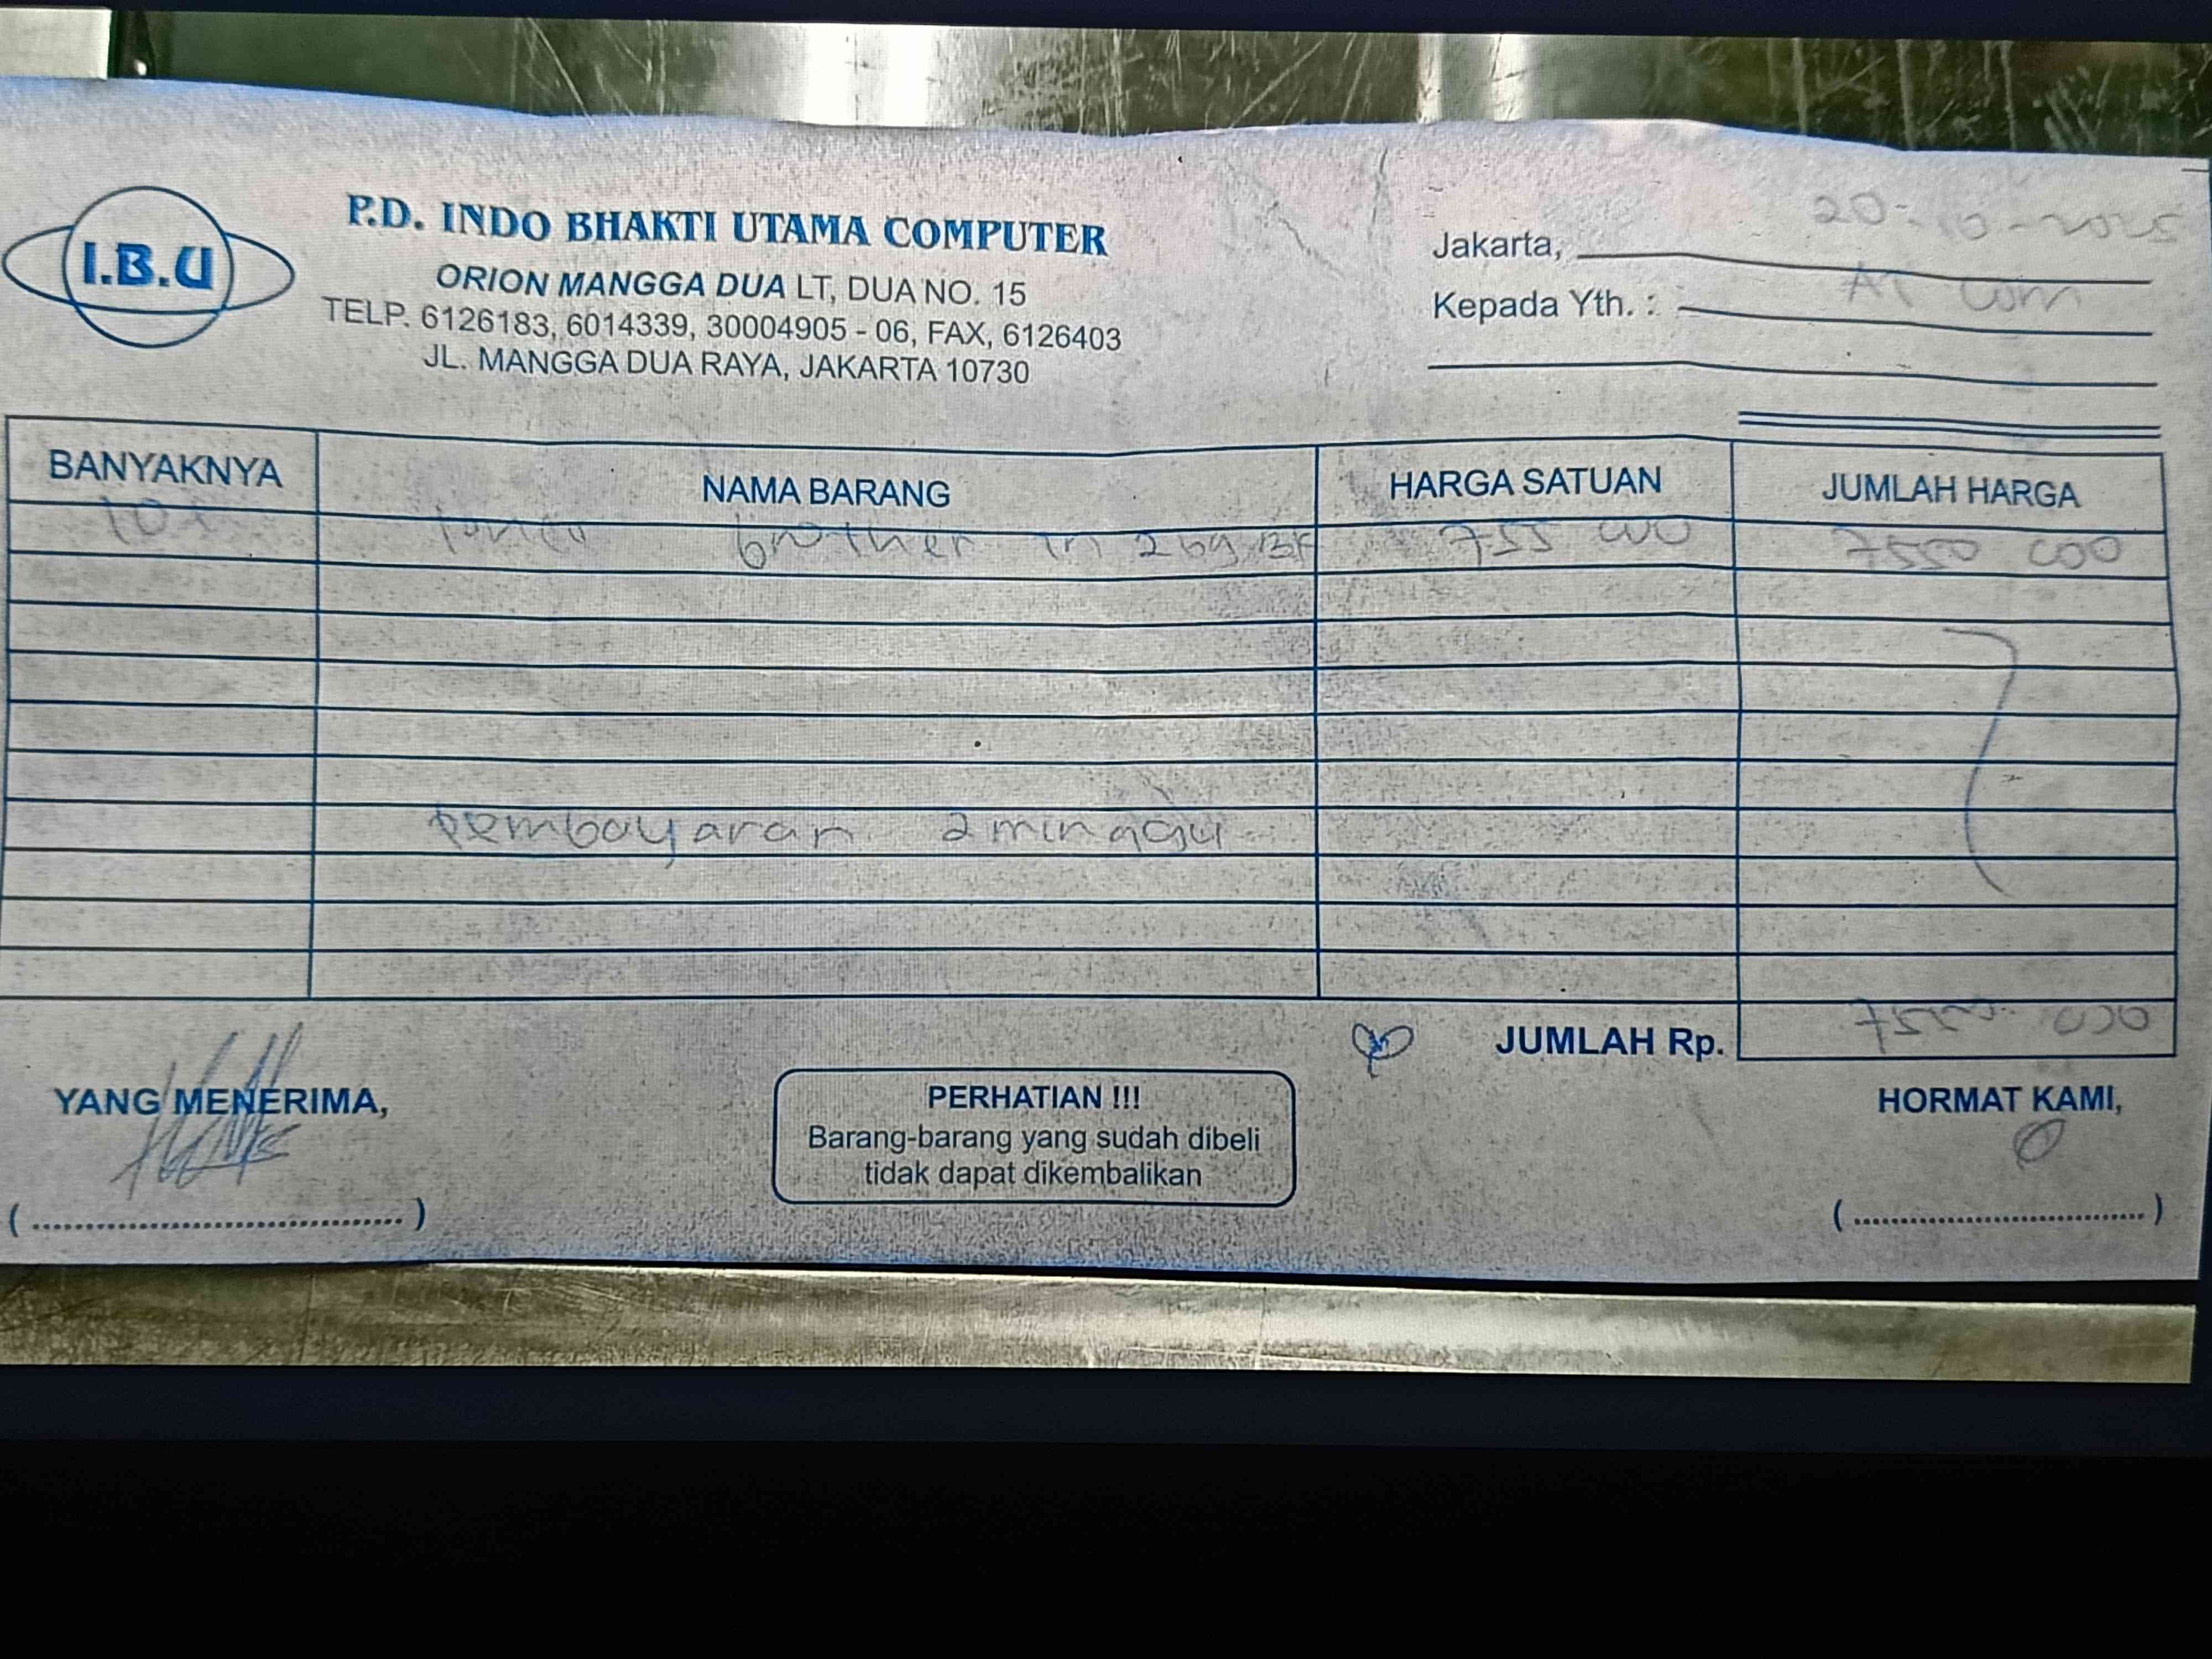 I.B.U
P.D. INDO BHAKTI UTAMA COMPUTER
ORION MANGGA DUA LT, DUA NO. 15
TELP. 6126183, 6014339, 30004905 - 06, FAX, 6126403
JL. MANGGA DUA RAYA, JAKARTA 10730
Jakarta, 20-10-2025
Kepada Yth. : com
BANYAKNYA NAMA BARANG HARGA SATUAN JUMLAH HARGA
brother 755 000 7550 000
pembayaran 2 minggu
JUMLAH Rp. 000
YANG MENERIMA,
PERHATIAN !!!
Barang-barang yang sudah dibeli
tidak dapat dikembalikan
HORMAT KAMI,